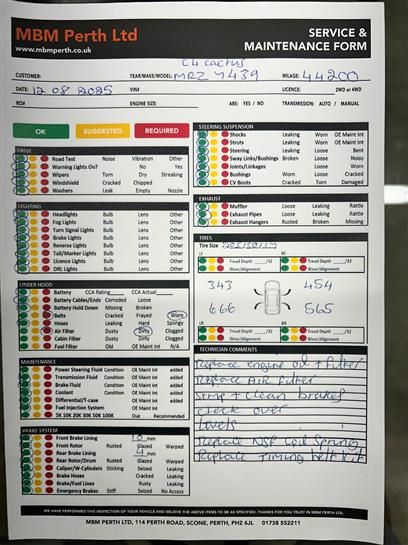 MBM Perth Ltd
www.mbmperth.co.uk
SERVICE &
MAINTENANCE FORM
C4 cactus
CUSTOMER: YEAR/MAKE/MODEL: MRZ 4439 MILAGE: 44200
DATE: 12 08 2025 VIN# LICENCE: 2WD or 4WD
RO# ENGINE SIZE: ABS: YES / NO TRANSMISSION: AUTO / MANUAL
OK SUGGESTED REQUIRED
DRIVE
Road Test Noise Vibration Other
Warning Lights On? No Yes
Wipers Torn Dry Streaking
Windshield Cracked Chipped
Washers Leak Empty Nozzle
LIGHTING
Headlights Bulb Lens Other
Fog Lights Bulb Lens Other
Turn Signal Lights Bulb Lens Other
Brake Lights Bulb Lens Other
Reverse Lights Bulb Lens Other
Tail/Marker Lights Bulb Lens Other
Licence Lights Bulb Lens Other
DRL Lights Bulb Lens Other
UNDER HOOD
Battery CCA Rating CCA Actual
Battery Cables/Ends Corroded Loose
Battery Hold Down Missing Broken
Belts Cracked Frayed Worn
Hoses Leaking Hard Spongy
Air Filter Dusty Dirty Clogged
Cabin Filter Dusty Dirty Clogged
Fuel Filter Old OE Maint Int N/A
MAINTENANCE
Power Steering Fluid Condition OE Maint Int added
Transmission Fluid Condition OE Maint Int added
Brake Fluid Condition OE Maint Int added
Coolant Condition OE Maint Int added
Differential/T-case OE Maint Int added
Fuel Injection System OE Maint Int
Due Recommended
BRAKE SYSTEM
Front Brake Lining 10 mm
Front Rotor Rusted Glazed Warped
Rear Brake Lining 4 mm
Rear Rotor/Drum Rusted Glazed Warped
Caliper/W-Cylinders Sticking Seized Leaking
Brake Hoses Cracked Leaking
Brake/Fuel Lines Rusty Leaking
Emergency Brakes Stiff Seized No Access
STEERING SUSPENSION
Shocks Leaking Worn OE Maint Int
Struts Leaking Worn OE Maint Int
Steering Leaking Loose Bent
Sway Links/Bushings Broken Loose Noisy
Joints/Linkages Loose Worn
Bushings Worn Loose Cracked
CV Boots Cracked Torn Damaged
EXHAUST
Muffler Loose Leaking Rattle
Exhaust Pipes Loose Leaking Rattle
Exhaust Hangers Rusted Broken Missing
TIRES
Tire Size
LF RF
Tread Depth /32 Tread Depth /32
Wear/Alignment Wear/Alignment
343 454
666 565
LR RR
Tread Depth /32 Tread Depth /32
Wear/Alignment Wear/Alignment
TECHNICIAN COMMENTS
Replace engine oil + filter
Replace Air filter
Strip + clean brakes
check over
levels
Replace NSF coil spring
Replace Timing belt kit
WE HAVE PERFORMED THIS INSPECTION OF YOUR VEHICLE AND BELIEVE THE ABOVE ITEMS TO BE AS SPECIFIED. THANKS FOR YOU TRUST IN MBM PERTH LTD.
MBM PERTH LTD, 114 PERTH ROAD, SCONE, PERTH, PH2 6JL 01738 552211